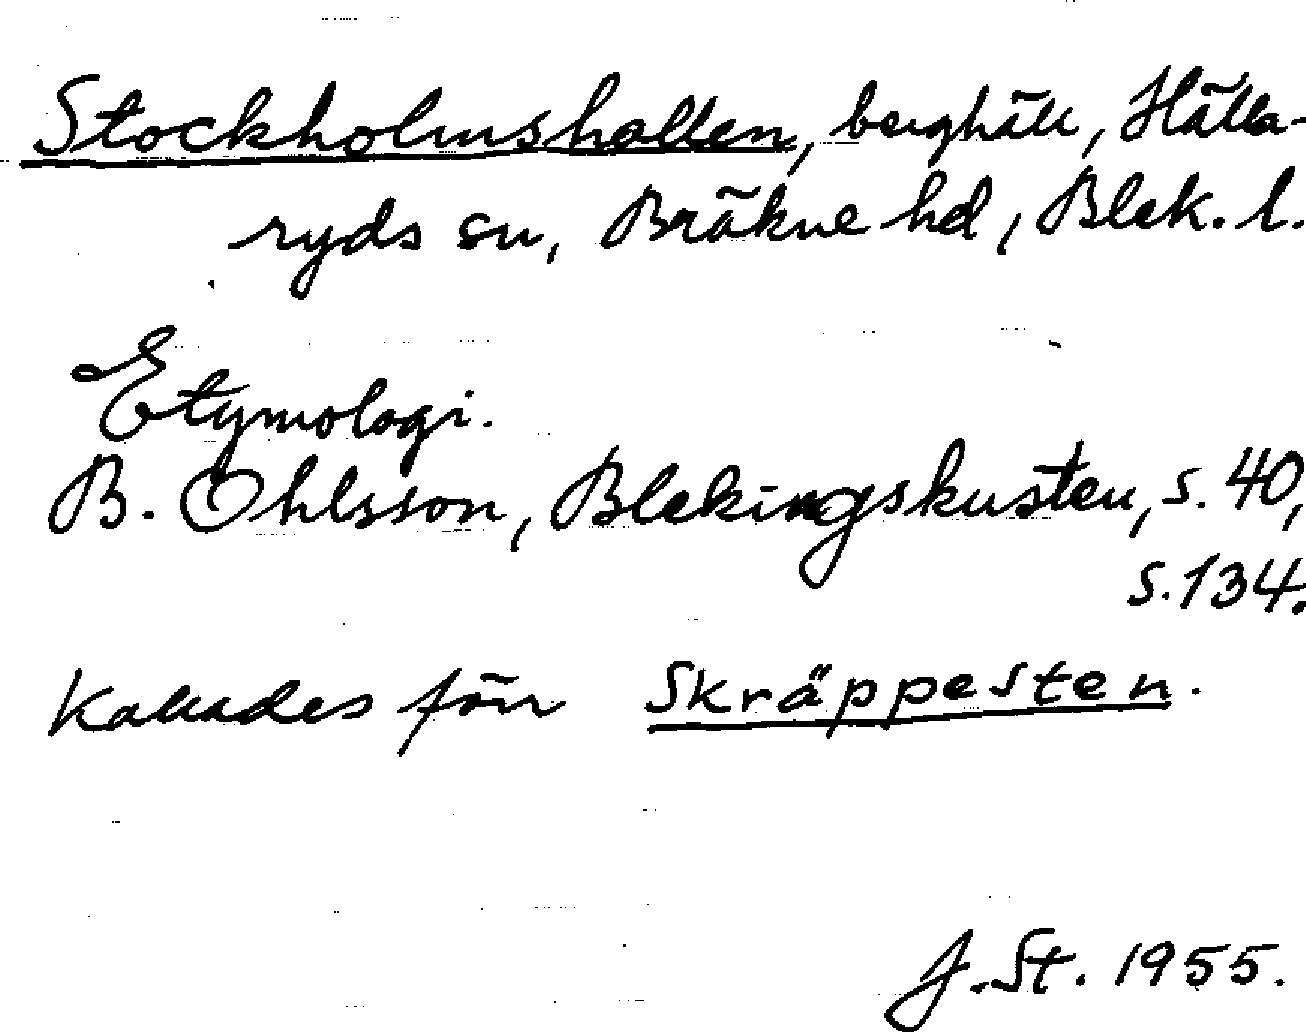 Stockholmshallen, berghäll, Hälla-
ryds sn, Bräkne hd, Blek. l.
Etymologi.
B. Ohlsson, Blekingskusten, s. 40,
s. 134.
Kallades förr Skräppesten.
J. St. 1955.